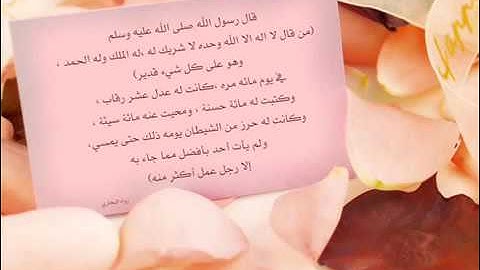 قال رسول الله صلى الله عليه وسلم
(من قال لا اله الا الله وحده لا شريك له ،له الملك وله الحمد ،
وهو على كل شيء قدير)
في يوم مائه مره ،كانت له عدل عشر رقاب ،
وكتبت له مائة حسنة ، ومحيت عنه مائة سيئة ،
وكانت له حرز من الشيطان يومه ذلك حتى يمسي،
ولم يأت احد بأفضل مما جاء به
إلا رجل عمل أكثر منه)
رواه البخاري